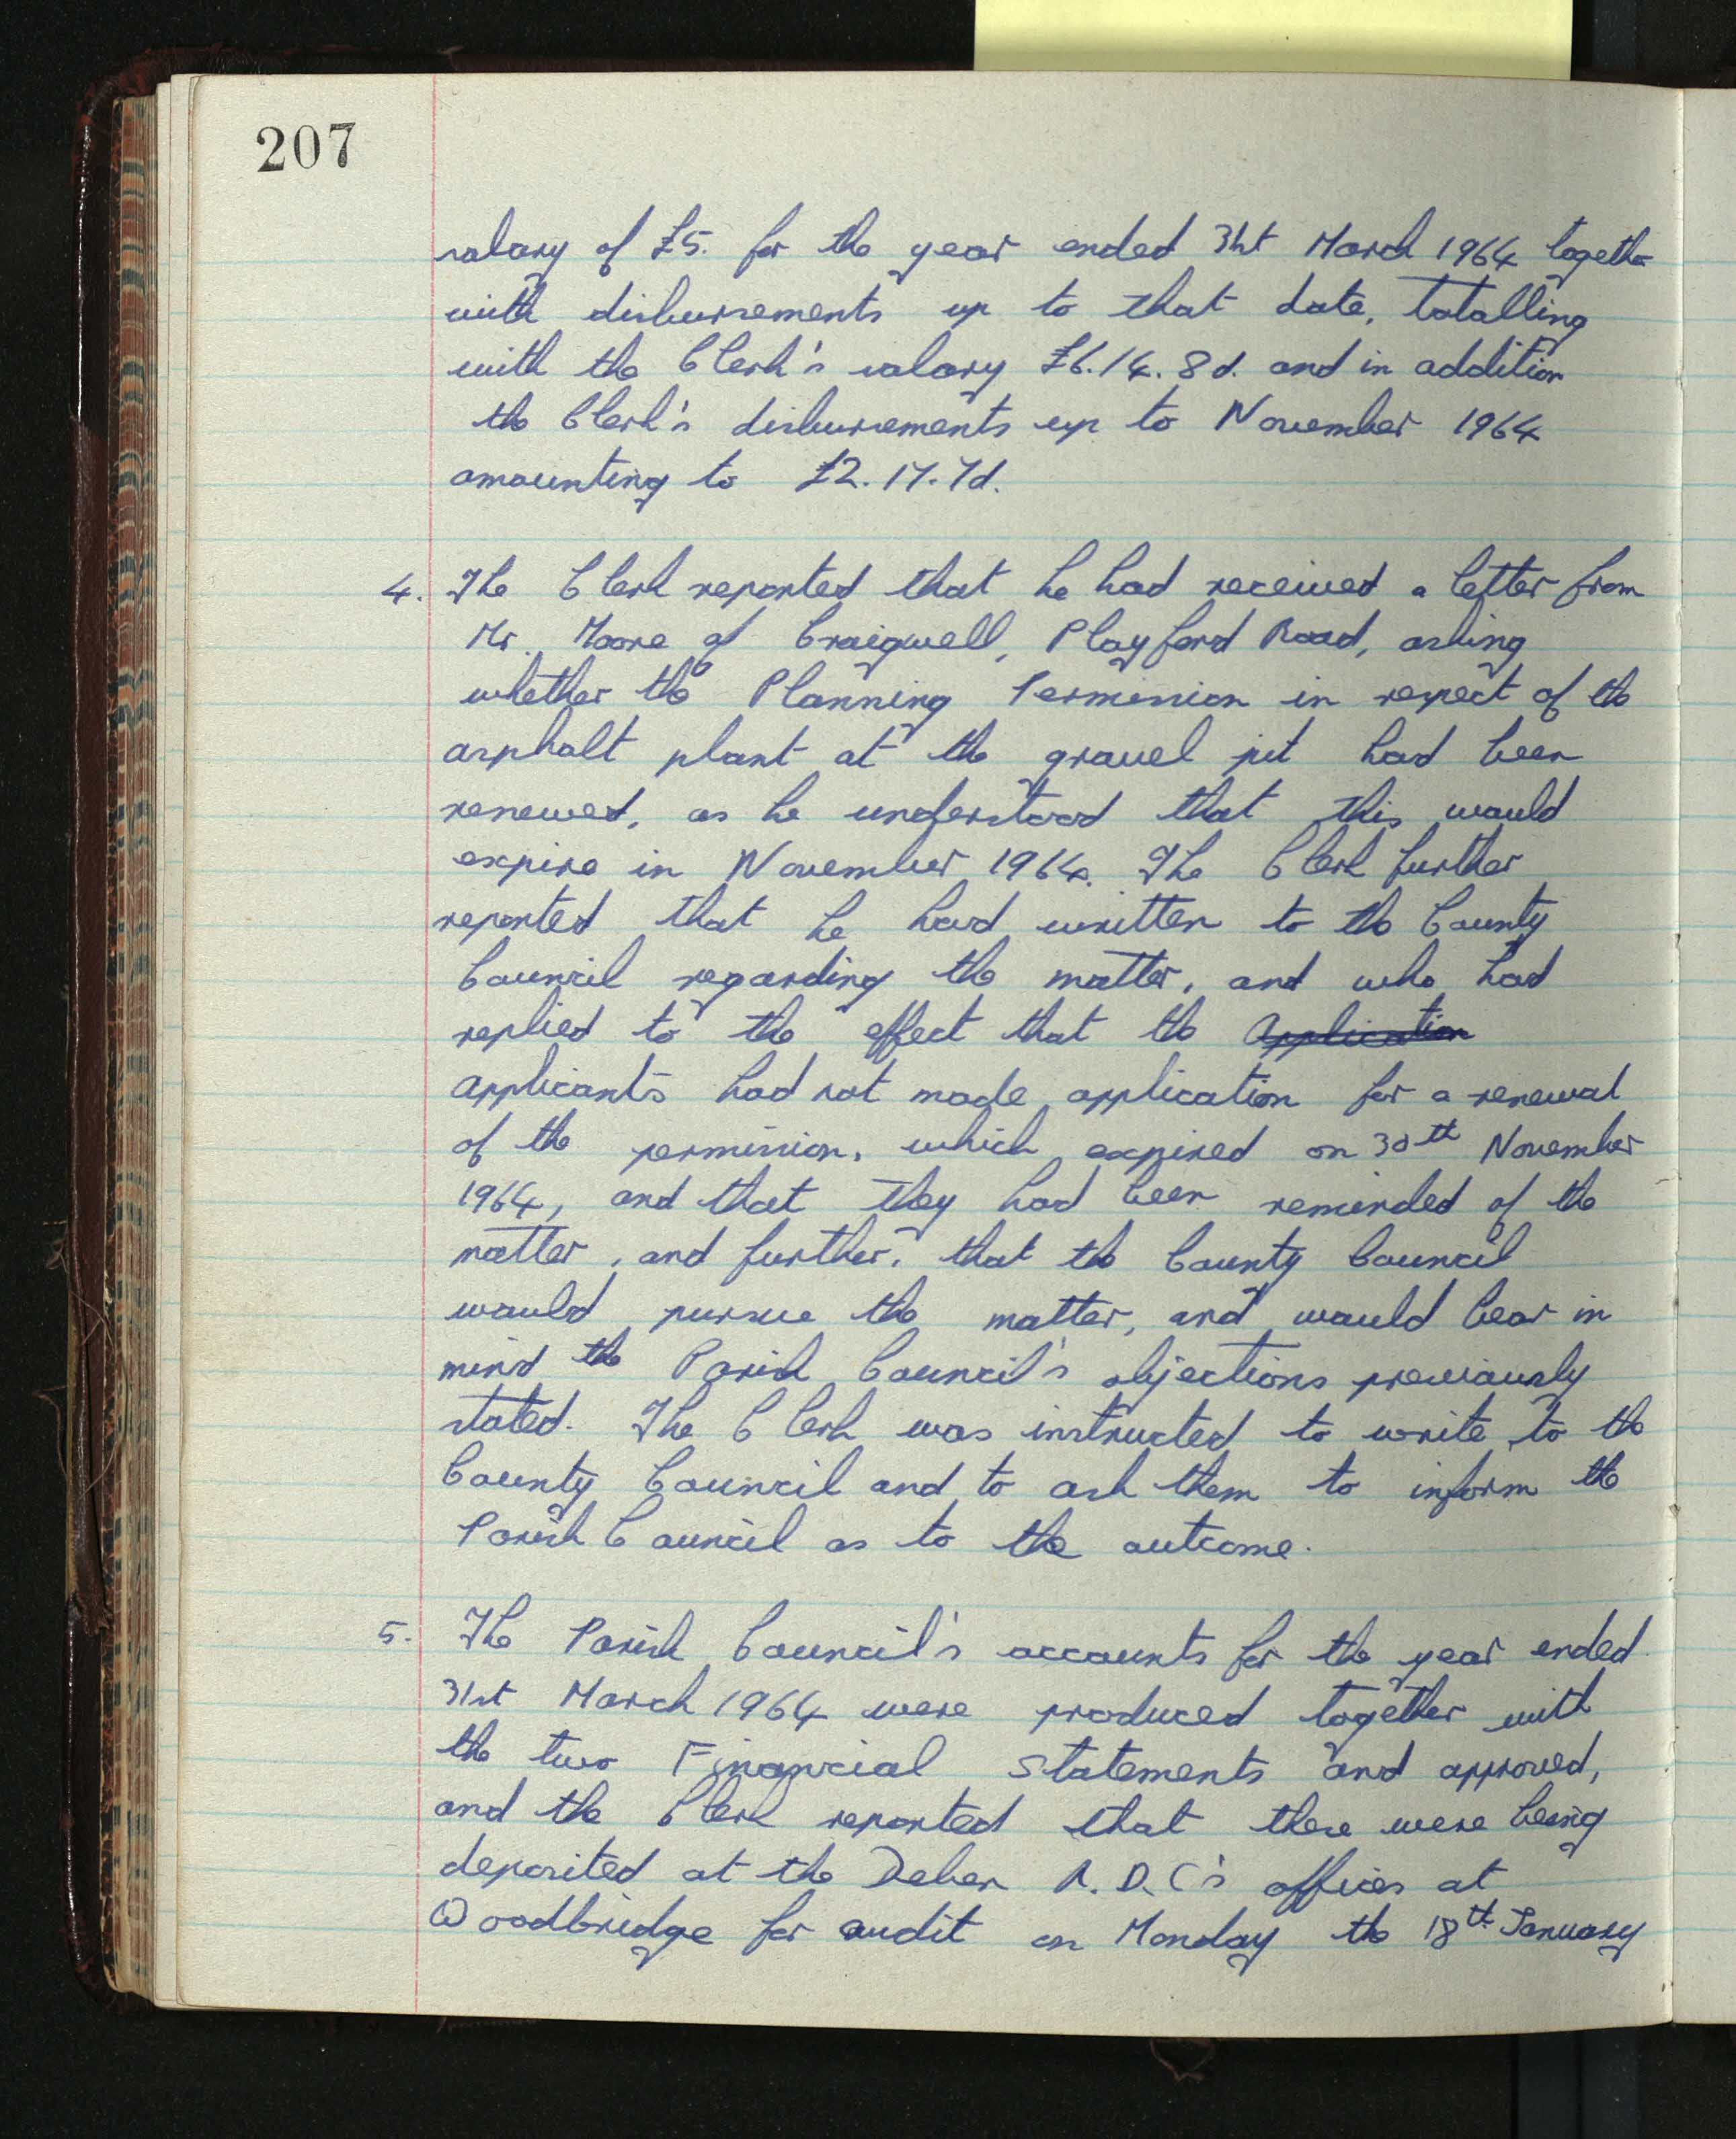 207
salary of £5. for the year ended 31st March 1964 together
with disbursements up to that date, totalling
with the Clerk's salary £6.14.8d. and in addition
the Clerk's disbursements up to November 1964
amounting to £2.17.7d.
4. The Clerk reported that he had received a letter from
Mr. Moore of Craigwell, Playford Road, asking
whether the Planning Permission in respect of the
asphalt plant at the gravel pit had been
renewed, as he understood that this would
expire in November 1964. The Clerk further
reported that he had written to the County
Council regarding the matter, and who had
replied to the effect that the Application
applicants had not made application for a renewal
of the permission, which expired on 30th November
1964, and that they had been reminded of the
matter, and further, that the County Council
would pursue the matter, and would bear in
mind the Parish Council's objections previously
stated. The Clerk was instructed to write to the
County Council and to ask them to inform the
Parish Council as to the outcome.
5. The Parish Council's accounts for the year ended
31st March 1964 were produced together with
the two Financial Statements and approved,
and the Clerk reported that these were being
deposited at the Deben R.D.C's offices at
Woodbridge for audit on Monday the 18th January